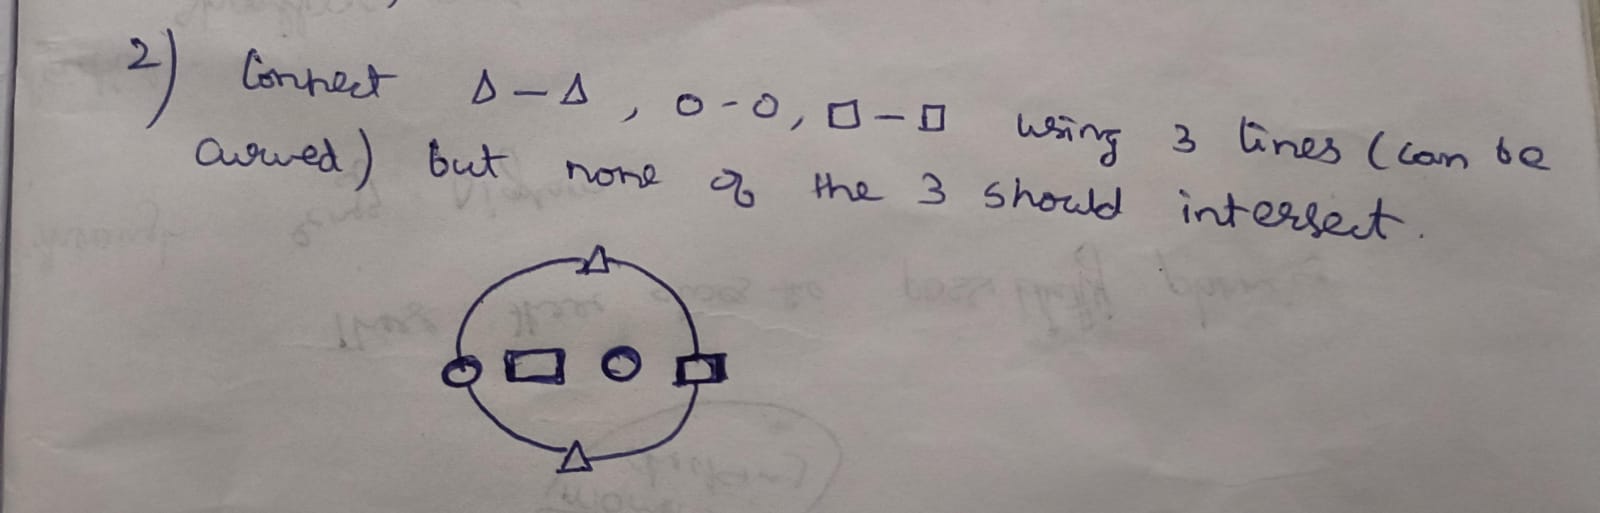 2) Connect Δ – Δ, ○ - ○, □ – □ using 3 lines (can be
curved) but none of the 3 should intersect.